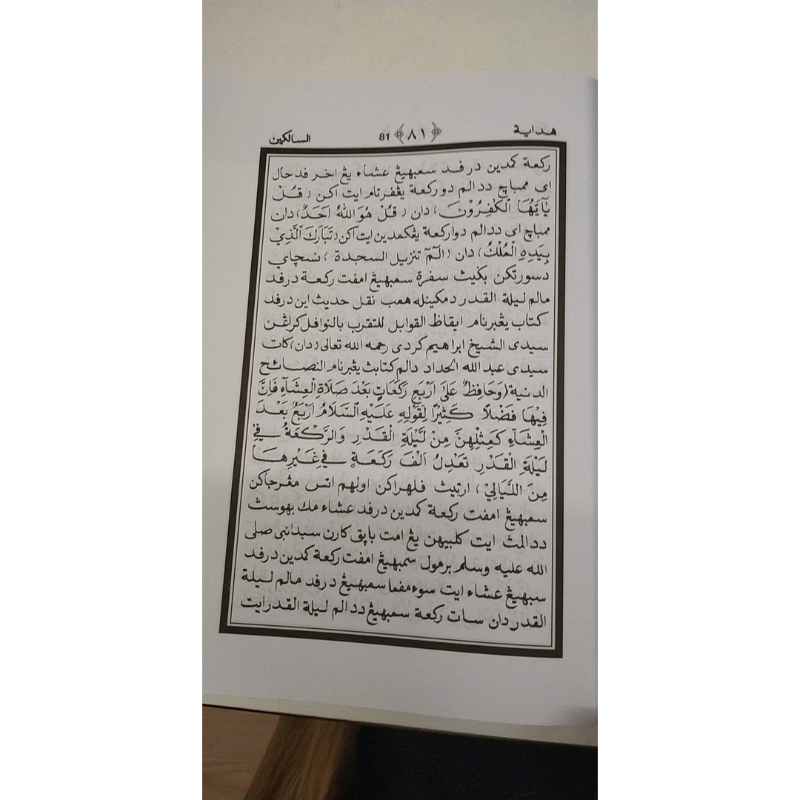 هداية ﴿٨١﴾ 81 السالكين
ركعة كمدين درفد سمبهيڠ عشاء يڠ اخر فد حال
اي ممباچ ددالم دو ركعة يڠفرتام ايت اكن ( قُلْ
يٰٓاَيُّهَا الْكٰفِرُوْنَ ) دان ( قُلْ هُوَ اللهُ اَحَدٌ ) دان
ممباچ اي ددالم دوا ركعة يڠكمدين ايت اكن ( تَبَارَكَ الَّذِيْ
بِيَدِهِ الْمُلْكُ ) دان ( الٓمّٓ تنزيل السجدة ) نسچاي
دسورتكن بڬيث سفرة سمبهيڠ امفت ركعة درفد
مالم ليلة القدر دمكينله همب نقل حديث اين درفد
كتاب يڠبرنام ايقاظ القوابل للتقرب بالنوافل كراڠن
سيدى الشيخ ابراهيم كردى رحمه الله تعالى ( دان ) كات
سيدى عبد الله الحداد دالم كتابث يڠبرنام النصائح
الدنية ( وَحَافِظْ عَلَى اَرْبَعِ رَكَعَاتٍ بَعْدَ صَلَاةِ الْعِشَآءِ فَاِنَّ
فِيْهَا فَضْلًا كَثِيْرًا لِقَوْلِهِ عَلَيْهِ السَّلَامُ اَرْبَعٌ بَعْدَ
الْعِشَآءِ كَمِثْلِهِنَّ مِنْ لَيْلَةِ الْقَدْرِ وَالرَّكْعَةُ فِيْ
لَيْلَةِ الْقَدْرِ تَعْدِلُ اَلْفَ رَكْعَةٍ فِيْ غَيْرِهَا
مِنَ اللَّيَالِيْ ) ارتيث فلهراكن اولهم اتس مڠرجاكن
سمبهيڠ امفت ركعة كمدين درفد عشاء مك بهوسث
ددالمث ايت كلبيهن يڠ امت باپق كارن سبدا نبى صلى
الله عليه وسلم برمول سمبهيڠ امفت ركعة كمدين درفد
سبهيڠ عشاء ايت سوءمفما سمبهيڠ درفد مالم ليلة
القدر دان سات ركعة سمبهيڠ ددالم ليلة القدر ايت